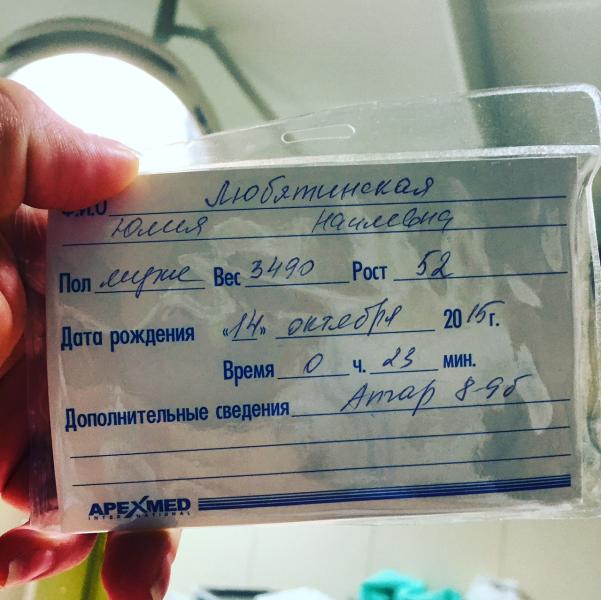 Ф.И.О Любятинская
Юлия Наилевна
Пол мужс Вес 3490 Рост 52
Дата рождения «14» октября 2015г.
Время 0 ч. 23 мин.
Дополнительные сведения Апгар 8-9б
APEXMED
INTERNATIONAL